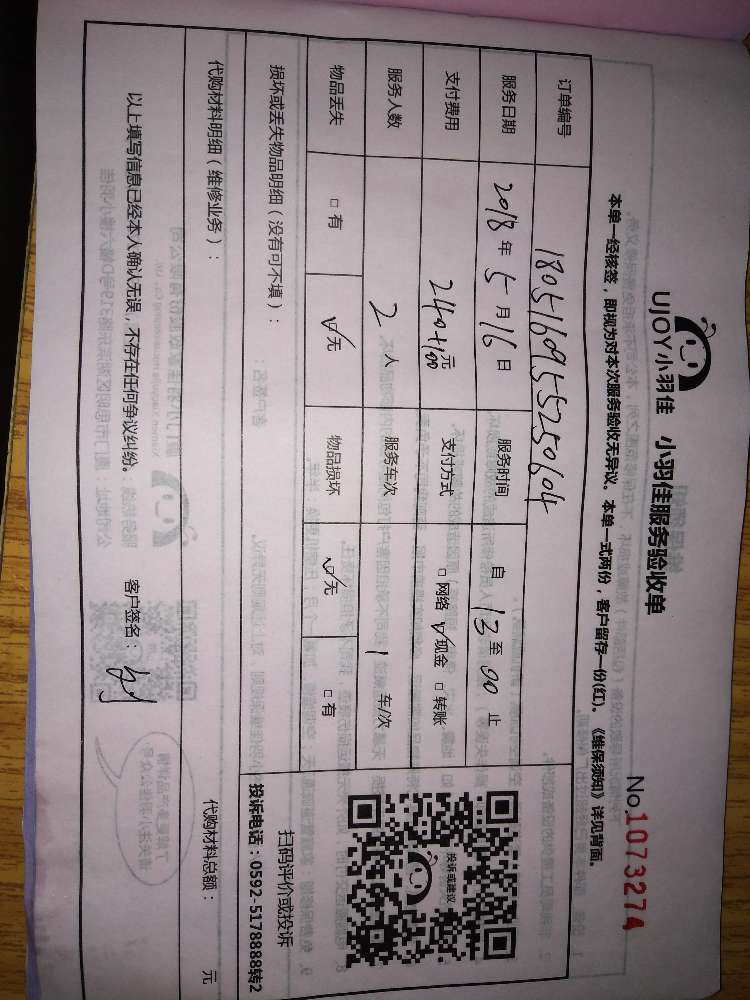 UJOY小羽佳 小羽佳服务验收单
No.1073274
本单一经核签，即视为对本次服务验收无异议。本单一式两份，客户留存一份(红)。《维保须知》详见背面。
订单编号 1805160955250604
服务日期 2018年5月16日 服务时间 自13至00止
支付费用 240+100元 支付方式 □网络 ☑现金 □转账
服务人数 2人 服务车次 1车/次
物品丢失 □有 ☑无 物品损坏 ☑无 □有
损坏或丢失物品明细（没有可不填）：
投诉或建议
扫码评价或投诉
投诉电话：0592-5178888转2
代购材料明细（维修业务）： 代购材料总额： 元
以上填写信息已经本人确认无误，不存在任何争议纠纷。 客户签名：